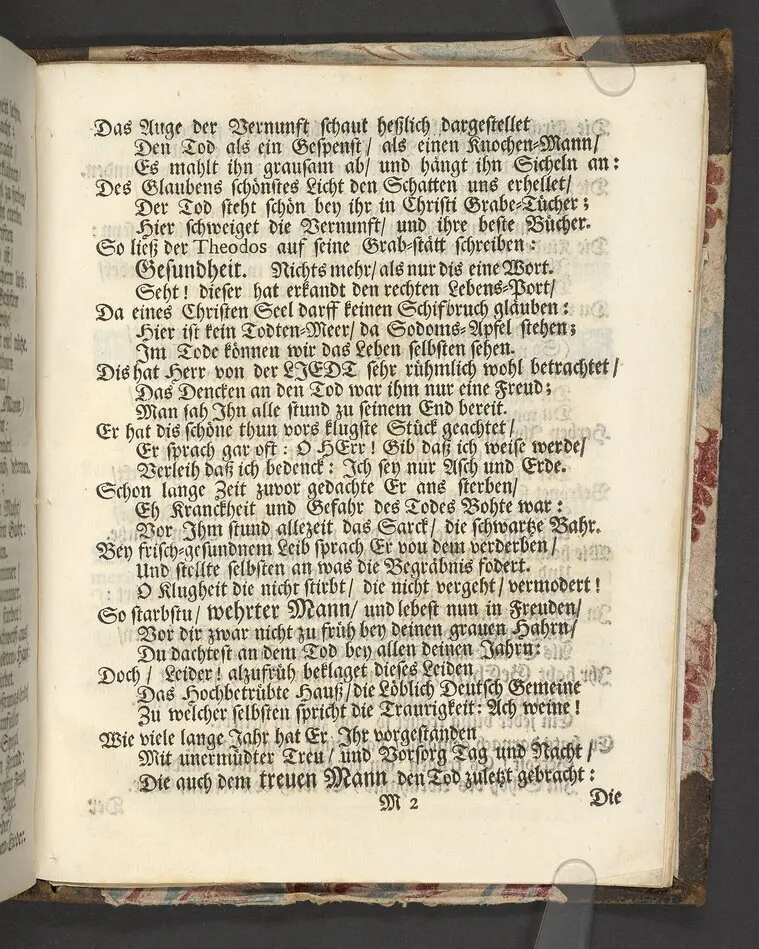 Das Auge der Vernunft schaut heßlich dargestellet
Den Tod als ein Gespenst/ als einen Knochen-Mann/
Es mahlt ihn grausam ab/ und hängt ihn Sicheln an:
Des Glaubens schönstes Licht den Schatten uns erhellet/
Der Tod steht schön bey ihr in Christi Grabe-Tücher;
Hier schweiget die Vernunft/ und ihre beste Bücher.
So ließ der Theodos auf seine Grab-stätt schreiben:
Gesundheit. Nichts mehr/ als nur dis eine Wort.
Seht! dieser hat erkandt den rechten Lebens-Port/
Da eines Christen Seel darff keinen Schifbruch gläuben:
Hier ist kein Todten-Meer/ da Sodoms-Apfel stehen;
Im Tode können wir das Leben selbsten sehen.
Dis hat Herr von der LIEDT sehr rühmlich wohl betrachtet/
Das Dencken an den Tod war ihm nur eine Freud;
Man sah Ihn alle stund zu seinem End bereit.
Er hat dis schöne thun vors klugste Stück geachtet/
Er sprach gar oft: O HErr! Gib daß ich weise werde/
Verleih daß ich bedenck: Ich sey nur Asch und Erde.
Schon lange Zeit zuvor gedachte Er ans sterben/
Eh Kranckheit und Gefahr des Todes Bohte war:
Vor Ihm stund allezeit das Sarck/ die schwartze Bahr.
Bey frisch-gesundnem Leib sprach Er von dem verderben/
Und stellte selbsten an was die Begräbnis fodert.
O Klugheit die nicht stirbt/ die nicht vergeht/ vermodert!
So starbstu/ wehrter Mann/ und lebest nun in Freuden/
Vor dir zwar nicht zu früh bey deinen grauen Hahrn/
Du dachtest an dem Tod bey allen deinen Jahrn:
Doch/ Leider! alzufrüh beklaget dieses Leiden
Das Hochbetrübte Hauß/ die Löblich Deutsch Gemeine
Zu welcher selbsten spricht die Traurigkeit: Ach weine!
Wie viele lange Jahr hat Er Ihr vorgestanden
Mit unermüdter Treu/ und Vorsorg Tag und Nacht/
Die auch dem treuen Mann den Tod zuletzt gebracht:
M 2
Die